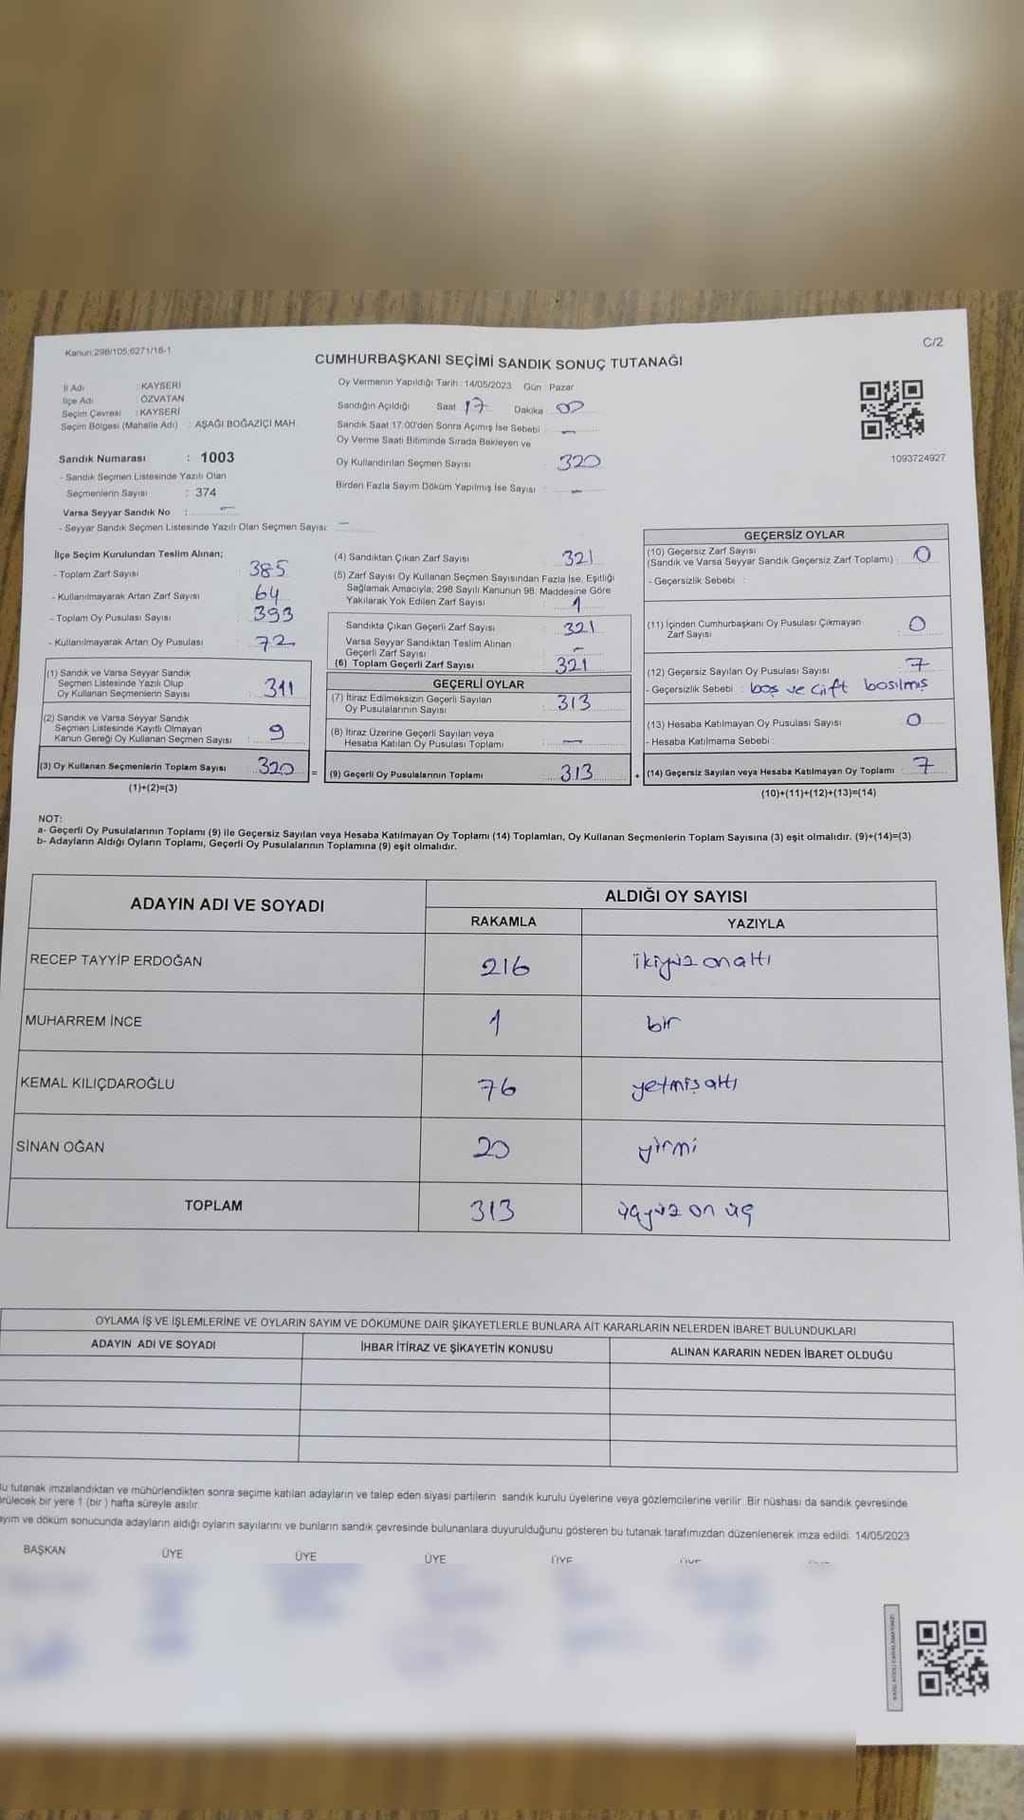 Kanun:298/105,6271/16-1
C/2
CUMHURBAŞKANI SEÇİMİ SANDIK SONUÇ TUTANAĞI
İl Adı : KAYSERİ
İlçe Adı : ÖZVATAN
Seçim Çevresi : KAYSERİ
Seçim Bölgesi (Mahalle Adı) : AŞAĞI BOĞAZİÇİ MAH
Sandık Numarası : 1003
- Sandık Seçmen Listesinde Yazılı Olan
Seçmenlerin Sayısı : 374
Varsa Seyyar Sandık No : -
- Seyyar Sandık Seçmen Listesinde Yazılı Olan Seçmen Sayısı: -
Oy Vermenin Yapıldığı Tarih : 14/05/2023 Gün Pazar
Sandığın Açıldığı Saat 17 Dakika 00
Sandık Saat 17:00'den Sonra Açımış İse Sebebi : -
Oy Verme Saati Bitiminde Sırada Bekleyen ve
Oy Kullandırılan Seçmen Sayısı 320
Birden Fazla Sayım Döküm Yapılmış İse Sayısı : -
1093724927
İlçe Seçim Kurulundan Teslim Alınan;
- Toplam Zarf Sayısı 385
- Kullanılmayarak Artan Zarf Sayısı 64
- Toplam Oy Pusulası Sayısı 393
- Kullanılmayarak Artan Oy Pusulası 72
(1) Sandık ve Varsa Seyyar Sandık
Seçmen Listesinde Yazılı Olup
Oy Kullanan Seçmenlerin Sayısı 311
(2) Sandık ve Varsa Seyyar Sandık
Seçmen Listesinde Kayıtlı Olmayan
Kanun Gereği Oy Kullanan Seçmen Sayısı 9
(3) Oy Kullanan Seçmenlerin Toplam Sayısı 320
(1)+(2)=(3)
(4) Sandıktan Çıkan Zarf Sayısı 321
(5) Zarf Sayısı Oy Kullanan Seçmen Sayısından Fazla İse, Eşitliği
Sağlamak Amacıyla; 298 Sayılı Kanunun 98. Maddesine Göre
Yakılarak Yok Edilen Zarf Sayısı 1
Sandıkta Çıkan Geçerli Zarf Sayısı 321
Varsa Seyyar Sandıktan Teslim Alınan
Geçerli Zarf Sayısı -
(6) Toplam Geçerli Zarf Sayısı 321
GEÇERLİ OYLAR
(7) İtiraz Edilmeksizin Geçerli Sayılan
Oy Pusulalarının Sayısı 313
(8) İtiraz Üzerine Geçerli Sayılan veya
Hesaba Katılan Oy Pusulası Toplamı : -
= (9) Geçerli Oy Pusulalarının Toplamı 313
GEÇERSİZ OYLAR
(10) Geçersiz Zarf Sayısı
(Sandık ve Varsa Seyyar Sandık Geçersiz Zarf Toplamı) : 0
- Geçersizlik Sebebi :
(11) İçinden Cumhurbaşkanı Oy Pusulası Çıkmayan
Zarf Sayısı : 0
(12) Geçersiz Sayılan Oy Pusulası Sayısı : 7
- Geçersizlik Sebebi : boş ve çift basılmış
(13) Hesaba Katılmayan Oy Pusulası Sayısı : 0
- Hesaba Katılmama Sebebi :
+ (14) Geçersiz Sayılan veya Hesaba Katılmayan Oy Toplamı 7
(10)+(11)+(12)+(13)=(14)
NOT:
a- Geçerli Oy Pusulalarının Toplamı (9) ile Geçersiz Sayılan veya Hesaba Katılmayan Oy Toplamı (14) Toplamları, Oy Kullanan Seçmenlerin Toplam Sayısına (3) eşit olmalıdır. (9)+(14)=(3)
b- Adayların Aldığı Oyların Toplamı, Geçerli Oy Pusulalarının Toplamına (9) eşit olmalıdır.
ADAYIN ADI VE SOYADI
ALDIĞI OY SAYISI
RAKAMLA YAZIYLA
RECEP TAYYİP ERDOĞAN 216 ikiyüz onaltı
MUHARREM İNCE 1 bir
KEMAL KILIÇDAROĞLU 76 yetmişaltı
SİNAN OĞAN 20 yirmi
TOPLAM 313 üçyüz on üç
OYLAMA İŞ VE İŞLEMLERİNE VE OYLARIN SAYIM VE DÖKÜMÜNE DAİR ŞİKAYETLERLE BUNLARA AİT KARARLARIN NELERDEN İBARET BULUNDUKLARI
ADAYIN ADI VE SOYADI İHBAR İTİRAZ VE ŞİKAYETİN KONUSU ALINAN KARARIN NEDEN İBARET OLDUĞU
u tutanak imzalandıktan ve mühürlendikten sonra seçime katılan adayların ve talep eden siyasi partilerin sandık kurulu üyelerine veya gözlemcilerine verilir. Bir nüshası da sandık çevresinde
rülecek bir yere 1 (bir ) hafta süreyle asılır.
ayım ve döküm sonucunda adayların aldığı oyların sayılarını ve bunların sandık çevresinde bulunanlara duyurulduğunu gösteren bu tutanak tarafımızdan düzenlenerek imza edildi. 14/05/2023
BAŞKAN ÜYE ÜYE ÜYE ÜYE